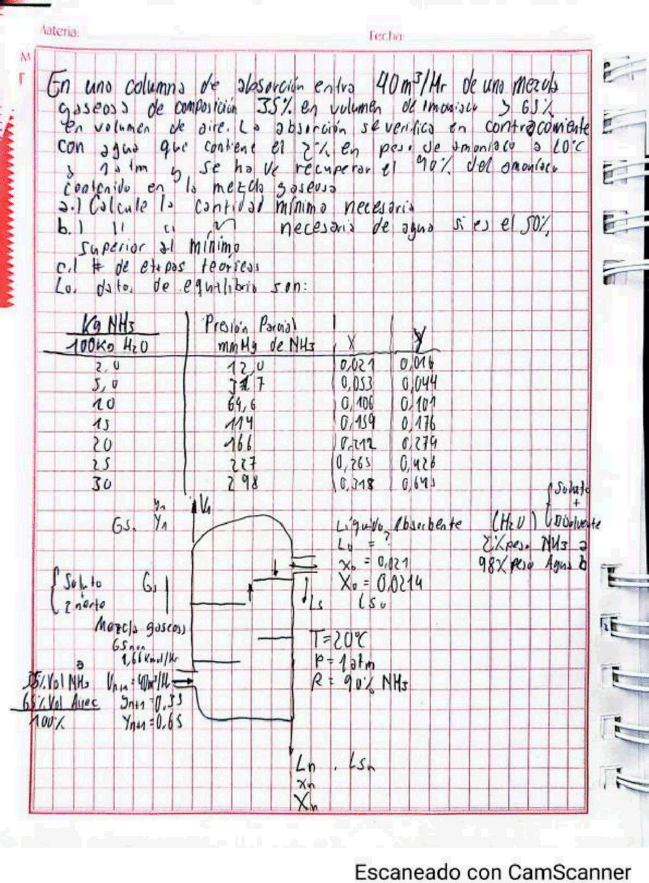 Materia:
Fecha:
En una columna de absorción entra 40 m³/Hr de una mezcla
gaseosa de composición 35% en volumen de amoniaco y 65%
en volumen de aire. La absorción se verifica en contracorriente
con agua que contiene el 2% en peso de amoniaco a 20°C
y 1 atm y se ha de recuperar el 90% del amoniaco
contenido en la mezcla gaseosa
a.) Calcule la cantidad mínima necesaria
b.) " " " necesaria de agua si es el 50%
superior al mínimo
c.) # de etapas teóricas
Los datos de equilibrio son:
Kg NH3 Presión Parcial
100Kg H2O mmHg de NH3 X Y
2,0 12,0 0,021 0,016
5,0 31,7 0,053 0,044
10 69,6 0,106 0,101
15 114 0,159 0,176
20 166 0,212 0,279
25 227 0,265 0,426
30 298 0,318 0,645
V1
y1
Gs1 Y1
Líquido Absorbente (H2O) { Soluto + Disolvente
L0 = ? 2% peso NH3 a
x0 = 0,021 98% peso Agua b
X0 = 0,0214
Ls Ls0
{ Soluto Gs
Inerte
Mezcla gaseosa
Gsn+1
1,66 Kmol/Hr
T=20°C
P=1atm
R= 90% NH3
35% Vol NH3 Vn+1 = 40m³/Hr
65% Vol Aire yn+1 = 0,35
100% Yn+1 = 0,65
Ln , Lsn
xn
Xn
Escaneado con CamScanner